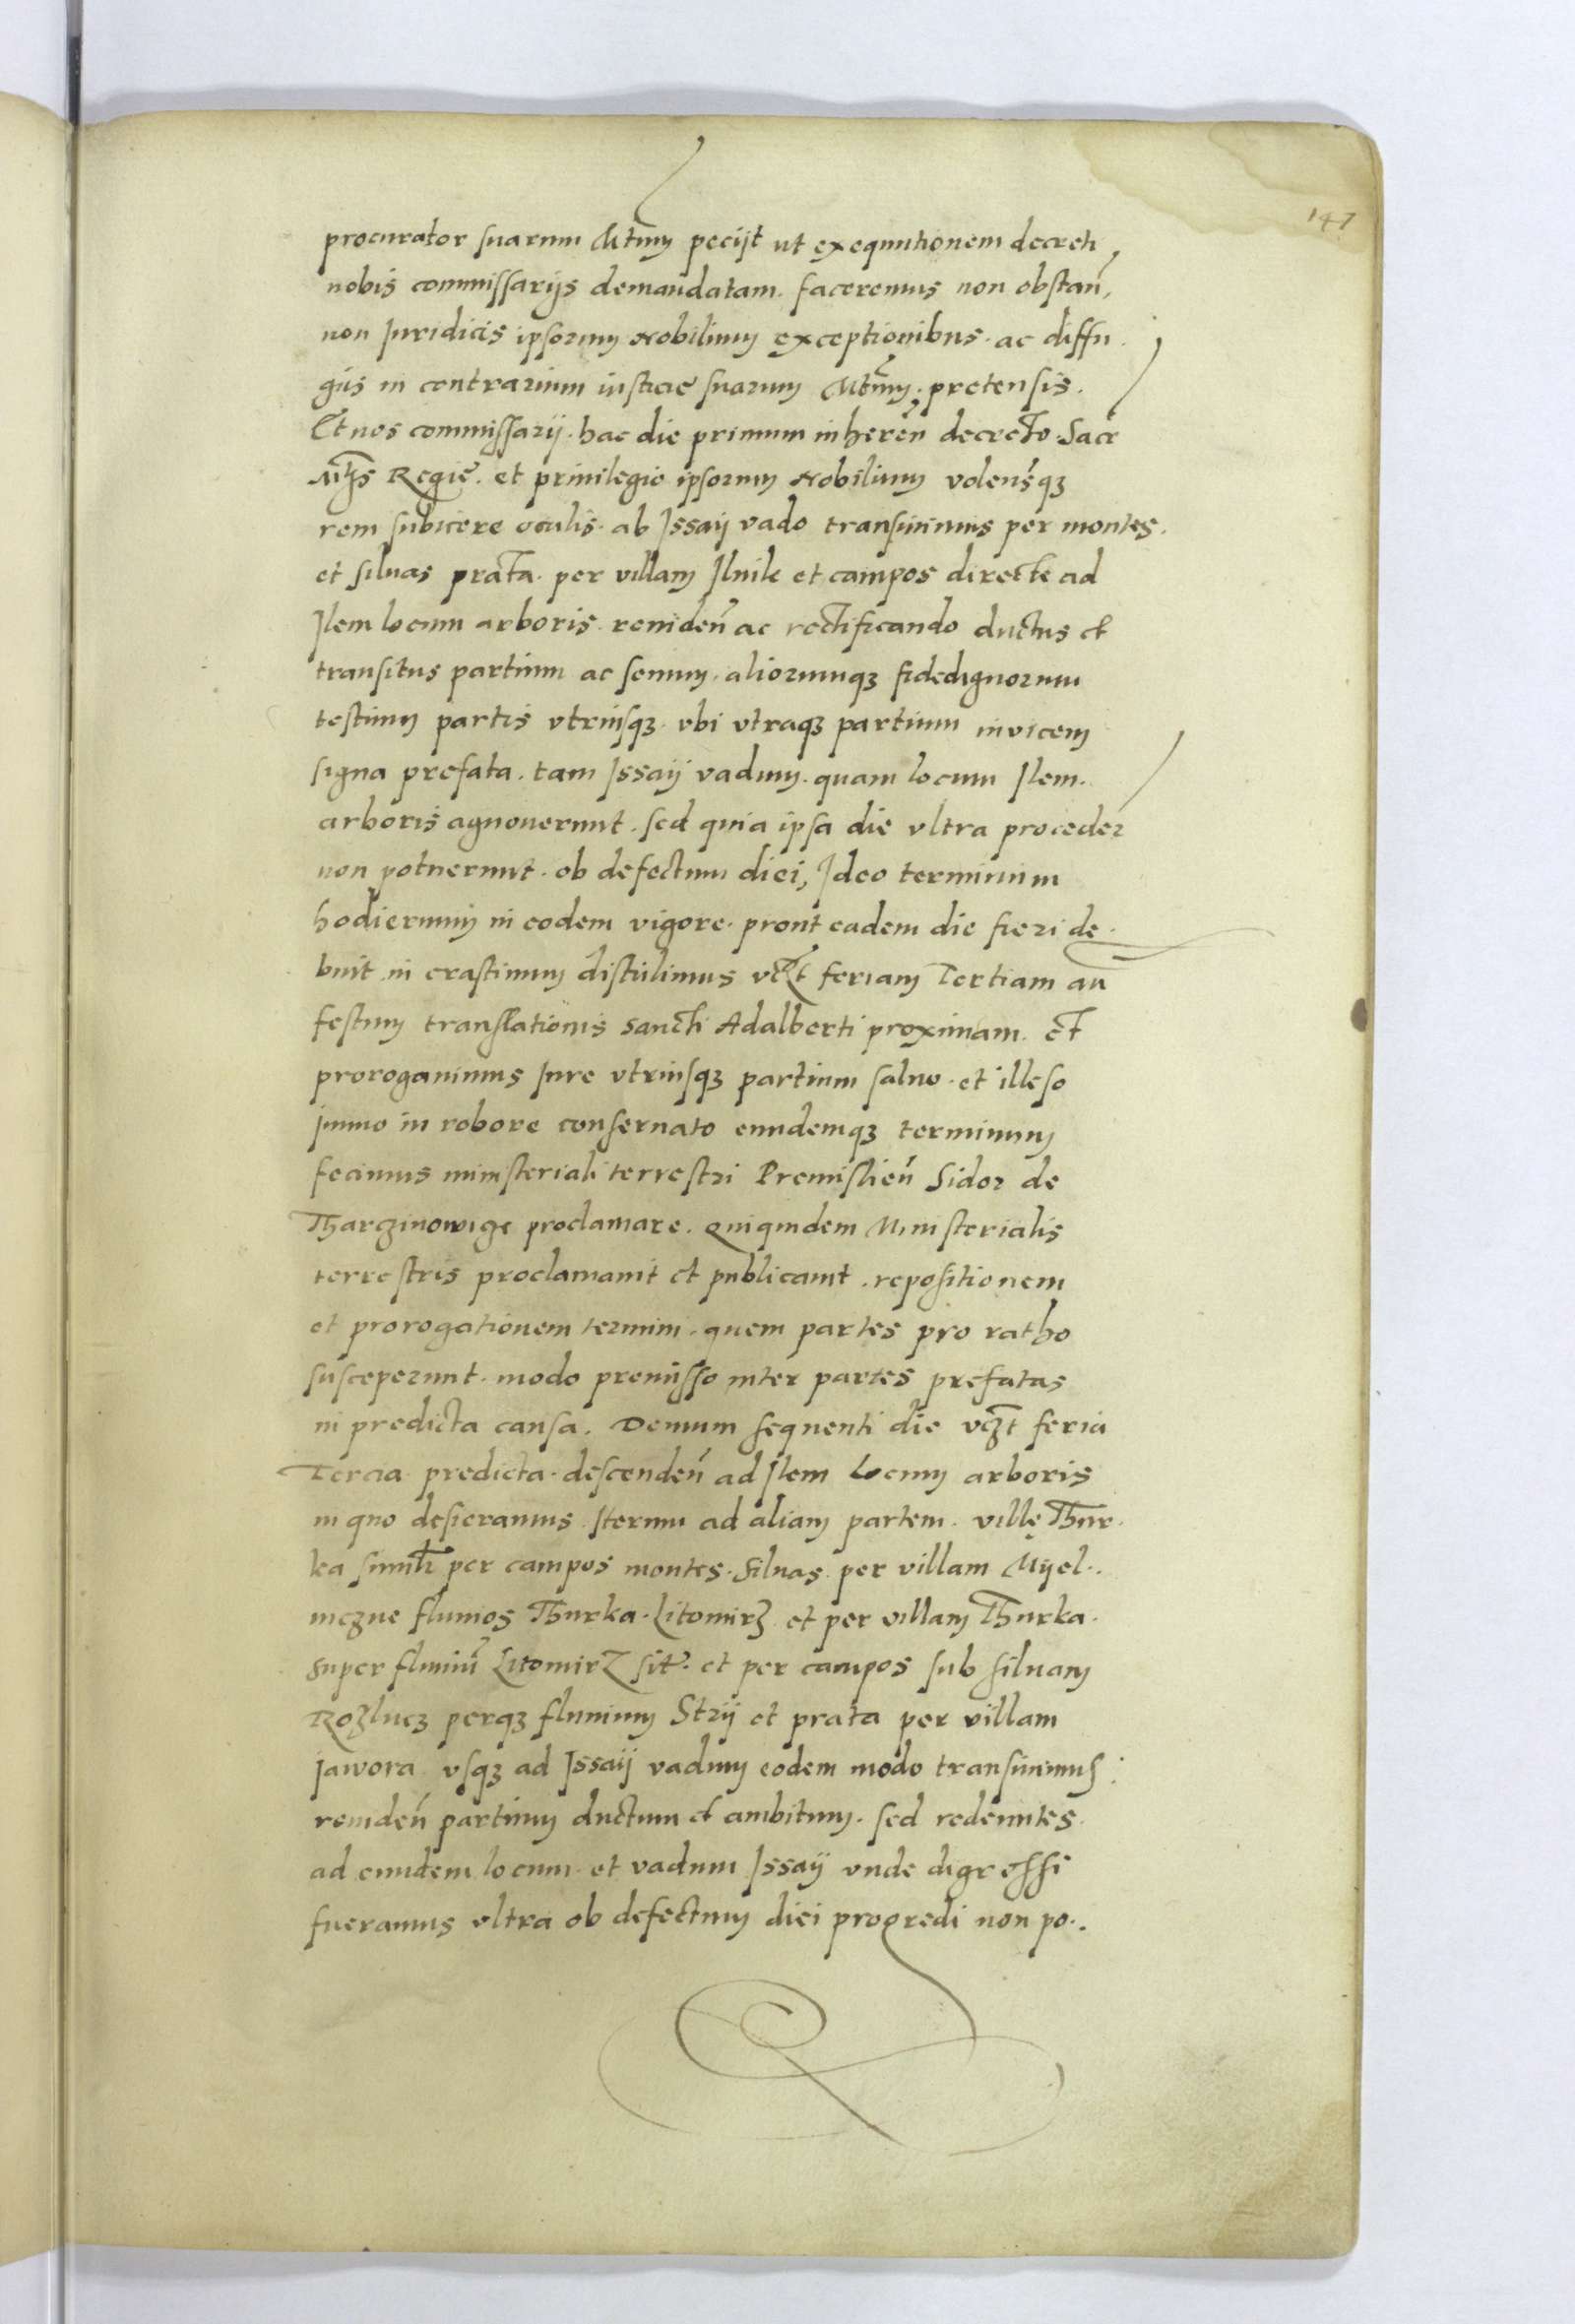 147
procurator suarum Mtum peciit ut exequutionem decreti
nobis commissariis demandatam. faceremus non obstan̄,
non Juridicis ipsorum Nobilium exceptionibus. ac diffu.
giis in contrarium iusticie suarum Mtum. pretensis.
Et nos commissarij. hac die primum inheren̄ decreto. Sacre
Mtis Regie. et priuilegio ipsorum Nobilium volensqȝ
rem subicere oculis. ab Jssaij vado transiuimus per montes.
et siluas prata. per villam Jlnik et campos directe ad
Jlem locum arboris. reuiden̄ ac rectificando ductus et
transitus partium ac senum. aliorumqȝ fidedignorum
testium partis vtriusqȝ. vbi vtraqȝ partium invicem
signa prefata. tam Jssaij vadum. quam locum Jlem.
arboris agnouerunt. sed quia ipsa die vltra proceder
non potuerunt. ob defectum diei, Jdeo terminum
hodiernum in eodem vigore. prout eadem die fieri de.
buit in crastinum distulimus vcȝt feriam Tertiam an̄
festum translationis sancti Adalberti proximam. et
prorogauimus Jure vtriusqȝ partium saluo. et illeso
jmmo in robore conseruato eundemqȝ terminum
fecimus ministeriali terrestri Premislien̄ Sidor de
Tharginowige proclamare. Quiquidem Ministerialis
terrestris proclamauit et publicauit. repositionem
et prorogationem termini. quem partes pro ratho
susceperunt. modo premisso inter partes prefatas
in predicta causa. Demum sequenti die vcȝt feria
Tercia predicta. descenden̄ ad Jlem Locum arboris
in quo desieramus Jterum ad aliam partem. ville Thur.
ka similr per campos montes. siluas. per villam Myel..
niczne fluuios Thurka. Litomirȝ et per villam Thurka.
super fluuiū Litomirz sit. et per campos sub siluam
Rozlucȝ perqȝ fluuium Strij et prata per villam
jawora vsqȝ ad Jssaij vadum eodem modo transiuimus:
reuiden̄ partium ductum et ambitum. sed redeuntes.
ad eundem locum. et vadum Jssaij vnde digressi
fueramus vltra ob defectum diei progredi non po..